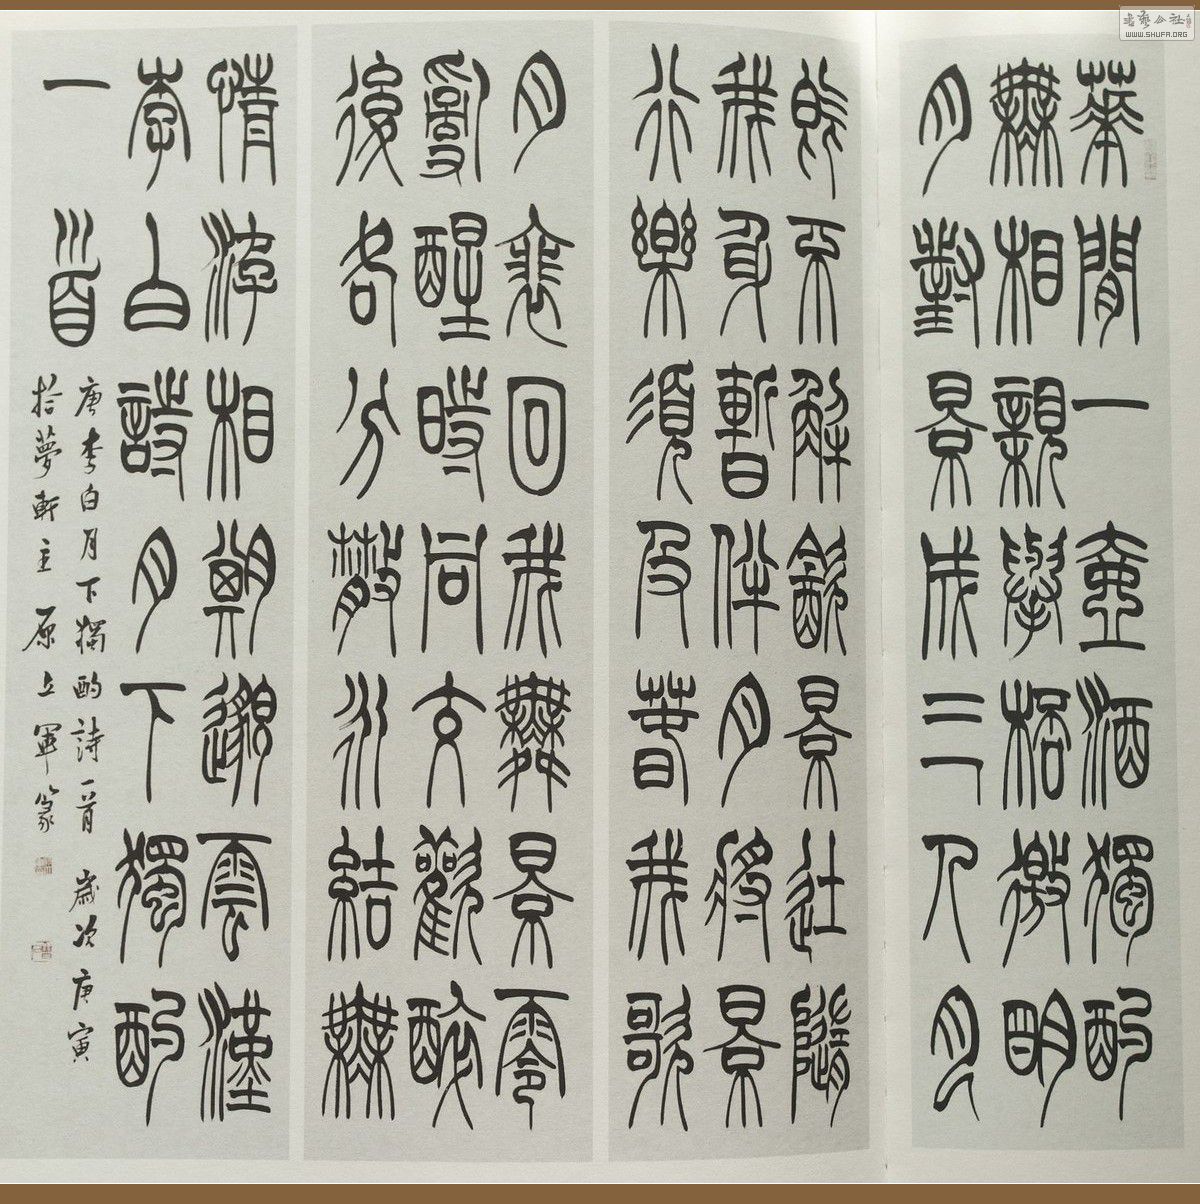 華間一壺酒獨酌
無相親舉桮邀明
月對景成三人月
既不解飲景徒隨
我身暫伴月將景
行樂須及春我歌
月裴回我舞景零
亂醒時同交歡醉
後各分散永結無
情游相期邈雲漢
李白詩月下獨酌
一首
唐李白月下獨酌詩一首 歲次庚寅
拾夢軒主原立軍篆
書藝公社
WWW.SHUFA.ORG